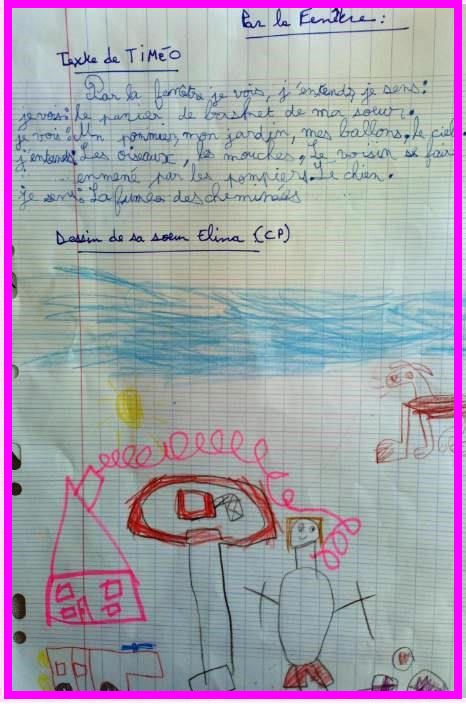 Par la Fenêtre :
Texte de TiMéO
Par la fenêtre je vois, j'entends, je sens :
je vois : le panier de basket de ma soeur.
je vois : Un pommier, mon jardin, mes ballons. le ciel.
j'entends : Les oiseaux, les mouches. Le voisin se faire
emmené par les pompiers. Le chien.
je sens : La fumée des cheminées
Dessin de sa soeur Elina (CP)